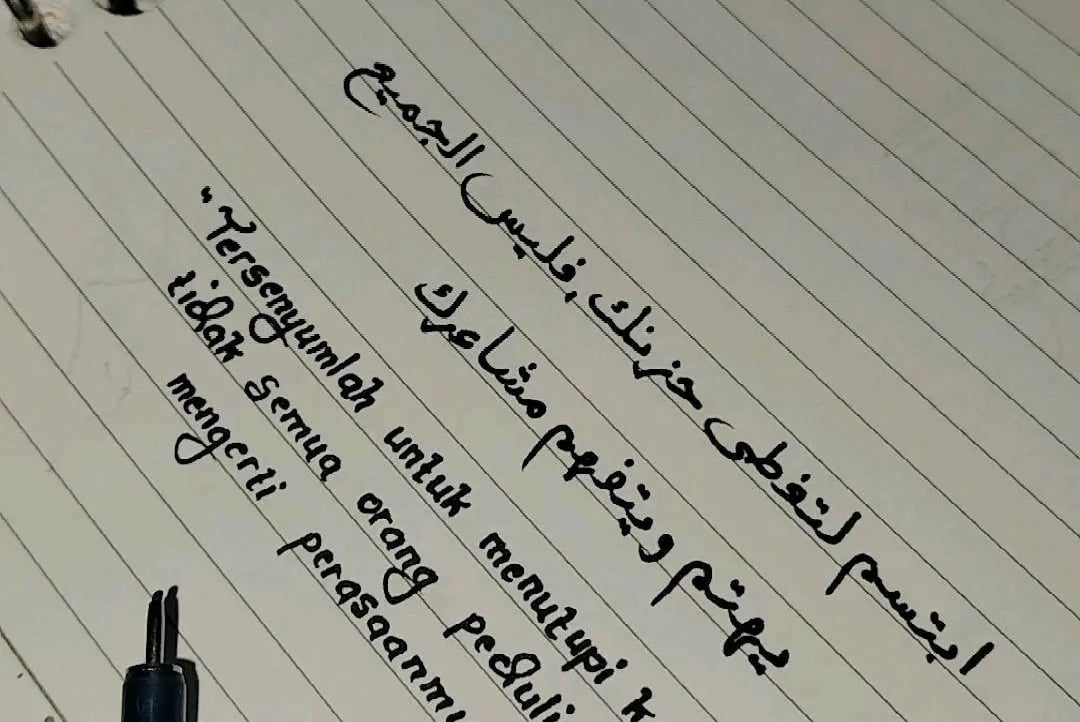 ابتسم لتغطى حزنك ,فليس الجميع
يهتم ويتفهم مشاعرك
"Tersenyumlah untuk menutupi k
tidak semua orang peduli
mengerti perasaanmu